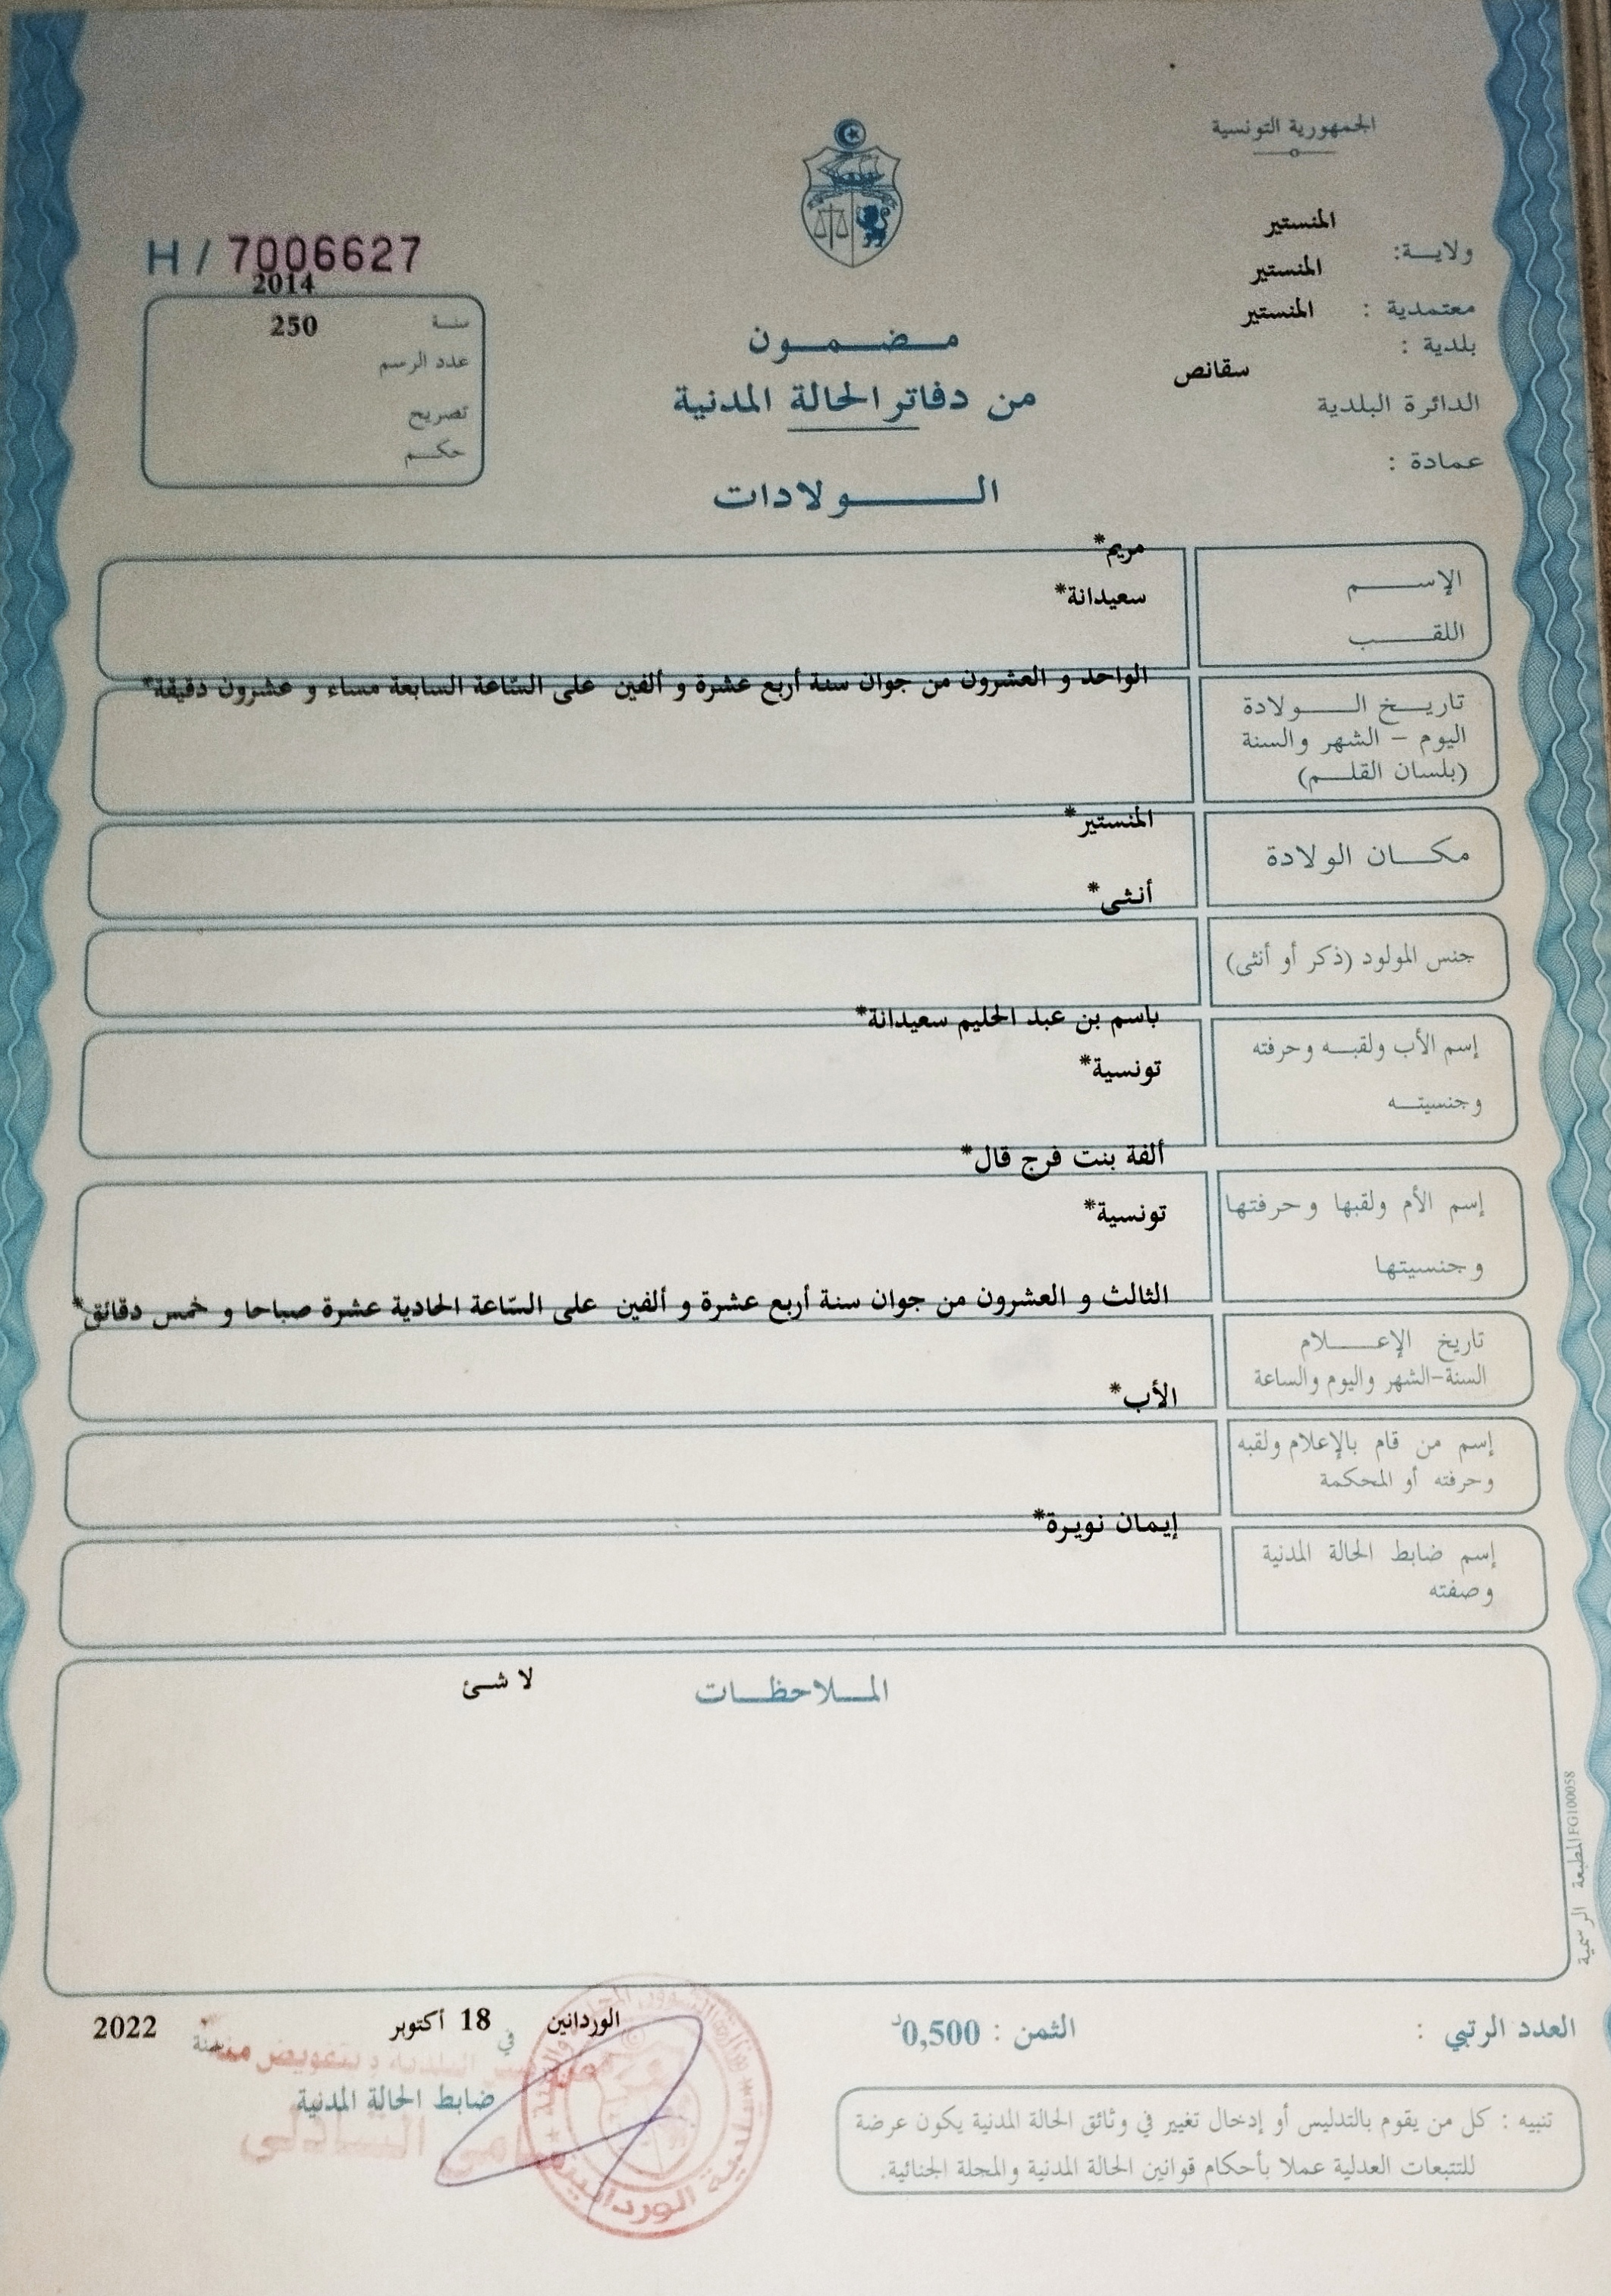 الجمهورية التونسية
ولاية: المنستير
معتمدية : المنستير
بلدية : المنستير
الدائرة البلدية سقانص
عمادة :
H / 7006627
سنة 2014
عدد الرسم 250
تصريح
حكم
مضمون
من دفاتر الحالة المدنية
الولادات
الإسم مريم*
اللقب سعيدانة*
تاريخ الولادة
اليوم - الشهر والسنة
(بلسان القلم)
الواحد و العشرون من جوان سنة أربع عشرة و ألفين على الساعة السابعة مساء و عشرون دقيقة*
مكان الولادة المنستير*
جنس المولود (ذكر أو أنثى) أنثى*
إسم الأب ولقبه وحرفته باسم بن عبد الحليم سعيدانة*
وجنسيته تونسية*
إسم الأم ولقبها وحرفتها ألفة بنت فرج قال*
وجنسيتها تونسية*
تاريخ الإعلام
السنة-الشهر واليوم والساعة
الثالث و العشرون من جوان سنة أربع عشرة و ألفين على الساعة الحادية عشرة صباحا و خمس دقائق*
إسم من قام بالإعلام ولقبه
وحرفته أو المحكمة
الأب*
إسم ضابط الحالة المدنية
وصفته
إيمان نويرة*
الملاحظات لا شئ
المطبعة الرسمية FG100058
العدد الرتبي :
الثمن : 0,500د
الوردانين في 18 أكتوبر سنة 2022
ضابط الحالة المدنية
تنبيه : كل من يقوم بالتدليس أو إدخال تغيير في وثائق الحالة المدنية يكون عرضة
للتتبعات العدلية عملا بأحكام قوانين الحالة المدنية والمجلة الجنائية.